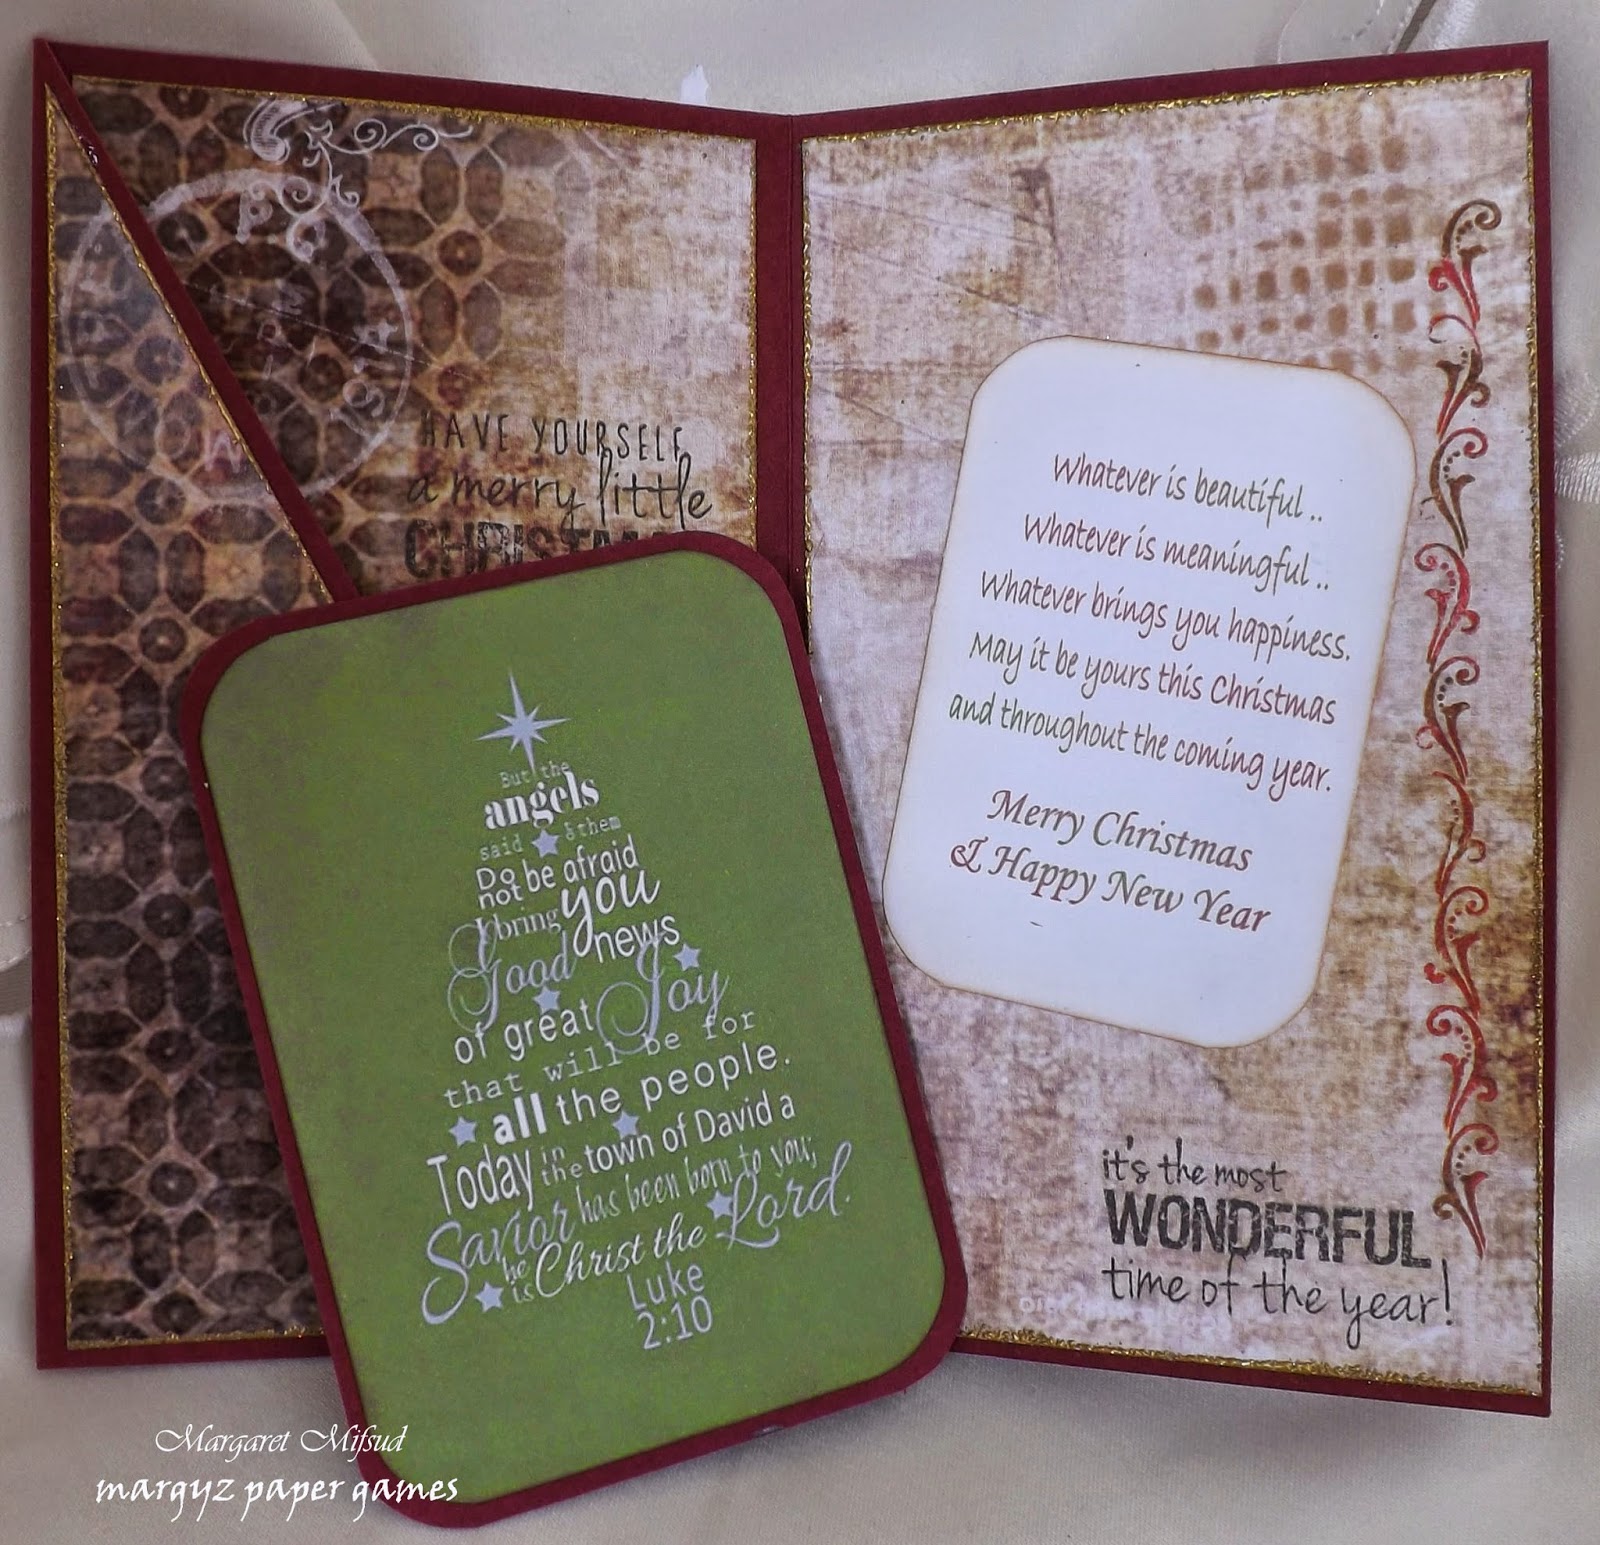 HAVE YOURSELF
a merry little
But the
angels
said
them
Do not be afraid
I bring you
Good news
of great Joy
that will be for
all the people.
Today in the town of David a
Savior has been born to you;
he is Christ the Lord.
Luke
2:10
Whatever is beautiful ..
Whatever is meaningful ..
Whatever brings you happiness.
May it be yours this Christmas
and throughout the coming year.
Merry Christmas
& Happy New Year
it's the most
WONDERFUL
time of the year!
Margaret Mifsud
margyz paper games